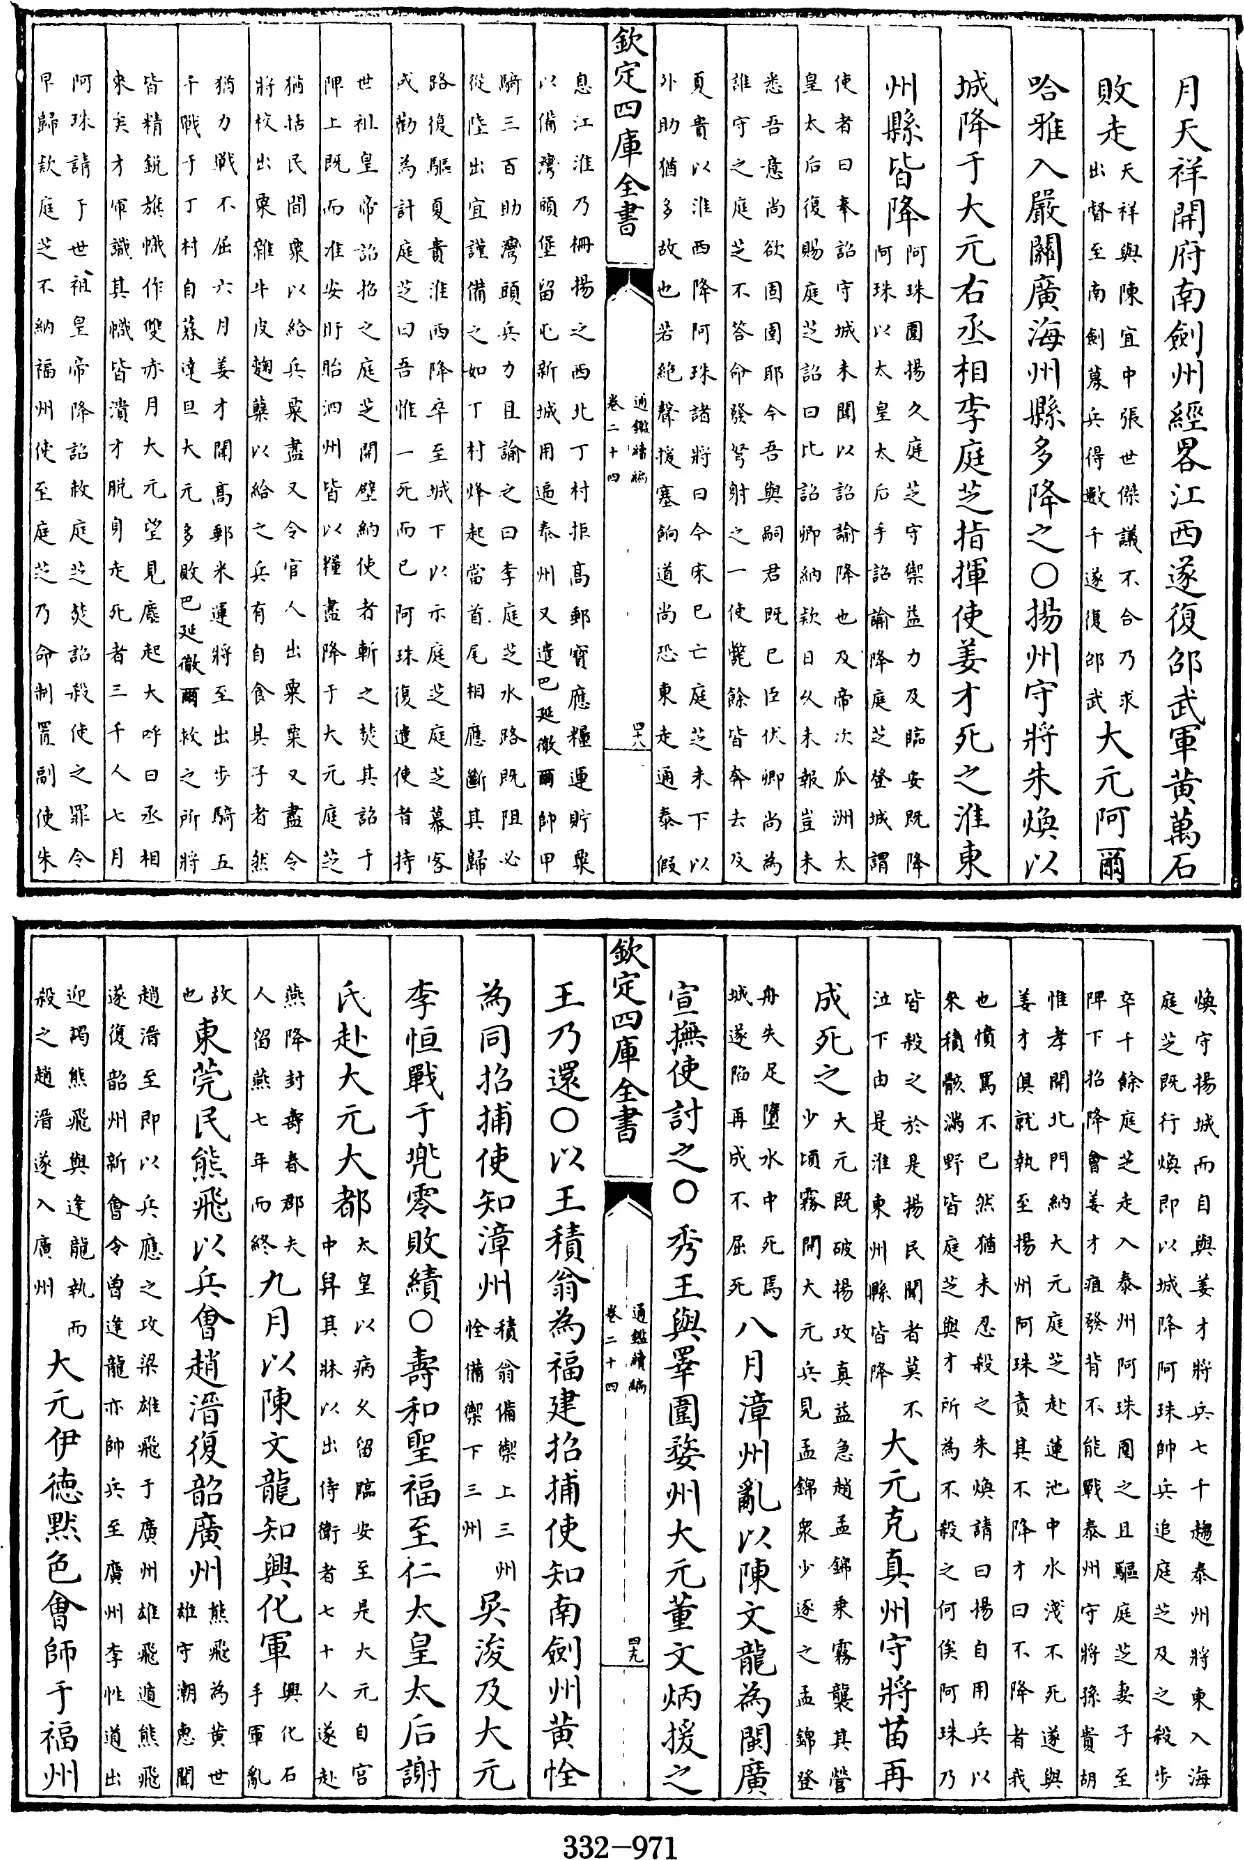 月天祥開府南劍州經畧江西遂復邵武軍黄萬石
敗走天祥與陳宜中張世傑議不合乃求
出督至南劍募兵得數千遂復邵武大元阿爾
哈雅入嚴關廣海州縣多降之〇揚州守將朱煥以
城降于大元右丞相李庭芝指揮使姜才死之淮東
州縣皆降阿珠圍揚久庭芝守禦益力及臨安既降
阿珠以太皇太后手詔諭降庭芝登城謂
使者曰奉詔守城未聞以詔諭降也及帝次瓜洲太
皇太后復賜庭芝詔曰比詔卿納款日久未報豈未
悉吾意尚欲固圉耶今吾與嗣君既已臣伏卿尚為
誰守之庭芝不答命發弩射之一使斃餘皆奔去及
夏貴以淮西降阿珠諸將曰今宋已亡庭芝未下以
外助猶多故也若絶聲援塞餉道尚恐東走通泰假
欽定四庫全書
通鑑續編
卷二十四
四十八
息江淮乃柵揚之西北丁村拒髙郵寶應糧運貯粟
以備灣頭堡留屯新城用逼泰州又遣巴延徹爾帥甲
騎三百助灣頭兵力且諭之曰李庭芝水路既阻必
從陸出宜謹備之如丁村烽起當首尾相應斷其歸
路復驅夏貴淮西降卒至城下以示庭芝庭芝幕客
或勸為計庭芝曰吾惟一死而已阿珠復遣使者持
世祖皇帝詔招之庭芝開壁納使者斬之焚其詔于
陴上既而淮安盱眙泗州皆以糧盡降于大元庭芝
猶括民間粟以給兵粟盡又令官人出粟粟又盡令
將校出粟雜牛皮麴糵以給之兵有自食其子者然
猶力戰不屈六月姜才聞髙郵米運將至出步騎五
千戰于丁村自暮達旦大元多敗巴延徹爾救之所將
皆精鋭旗幟作雙赤月大元望見塵起大呼曰丞相
來矣才軍識其幟皆潰才脫身走死者三千人七月
阿珠請于世祖皇帝降詔赦庭芝焚詔殺使之罪令
早歸款庭芝不納福州使至庭芝乃命制置副使朱
煥守揚城而自與姜才將兵七千趨泰州將東入海
庭芝既行煥即以城降阿珠帥兵追庭芝及之殺步
卒千餘庭芝走入泰州阿珠圍之且驅庭芝妻子至
陴下招降會姜才疽發背不能戰泰州守將孫貴胡
惟孝開北門納大元庭芝赴蓮池中水淺不死遂與
姜才俱就執至揚州阿珠責其不降才曰不降者我
也憤罵不已然猶未忍殺之朱煥請曰揚自用兵以
來積骸滿野皆庭芝與才所為不殺之何俟阿珠乃
皆殺之於是揚民聞者莫不
泣下由是淮東州縣皆降大元克真州守將苗再
成死之大元既破揚攻真益急趙孟錦乘霧襲其營
少頃霧開大元兵見孟錦衆少逐之孟錦登
舟失足墮水中死焉
城遂陷再成不屈死八月漳州亂以陳文龍為閩廣
宣撫使討之〇秀王與檡圍婺州大元董文炳援之
欽定四庫全書
通鑑續編
卷二十四
四十九
王乃還〇以王積翁為福建招捕使知南劍州黄恮
為同招捕使知漳州積翁備禦上三州
恮備禦下三州吳浚及大元
李恒戰于兜零敗績〇壽和聖福至仁太皇太后謝
氏赴大元大都太皇以病久留臨安至是大元自宮
中舁其牀以出侍衛者七十人遂赴
燕降封壽春郡夫
人留燕七年而終九月以陳文龍知興化軍興化石
手軍亂
故
也東莞民熊飛以兵會趙溍復韶廣州熊飛為黄世
雄守潮惠聞
趙溍至即以兵應之攻梁雄飛于廣州雄飛遁熊飛
遂復韶州新會令曾逢龍亦帥兵至廣州李性道出
迎謁熊飛與逢龍執而
殺之趙溍遂入廣州大元伊德黙色會師于福州
332-971